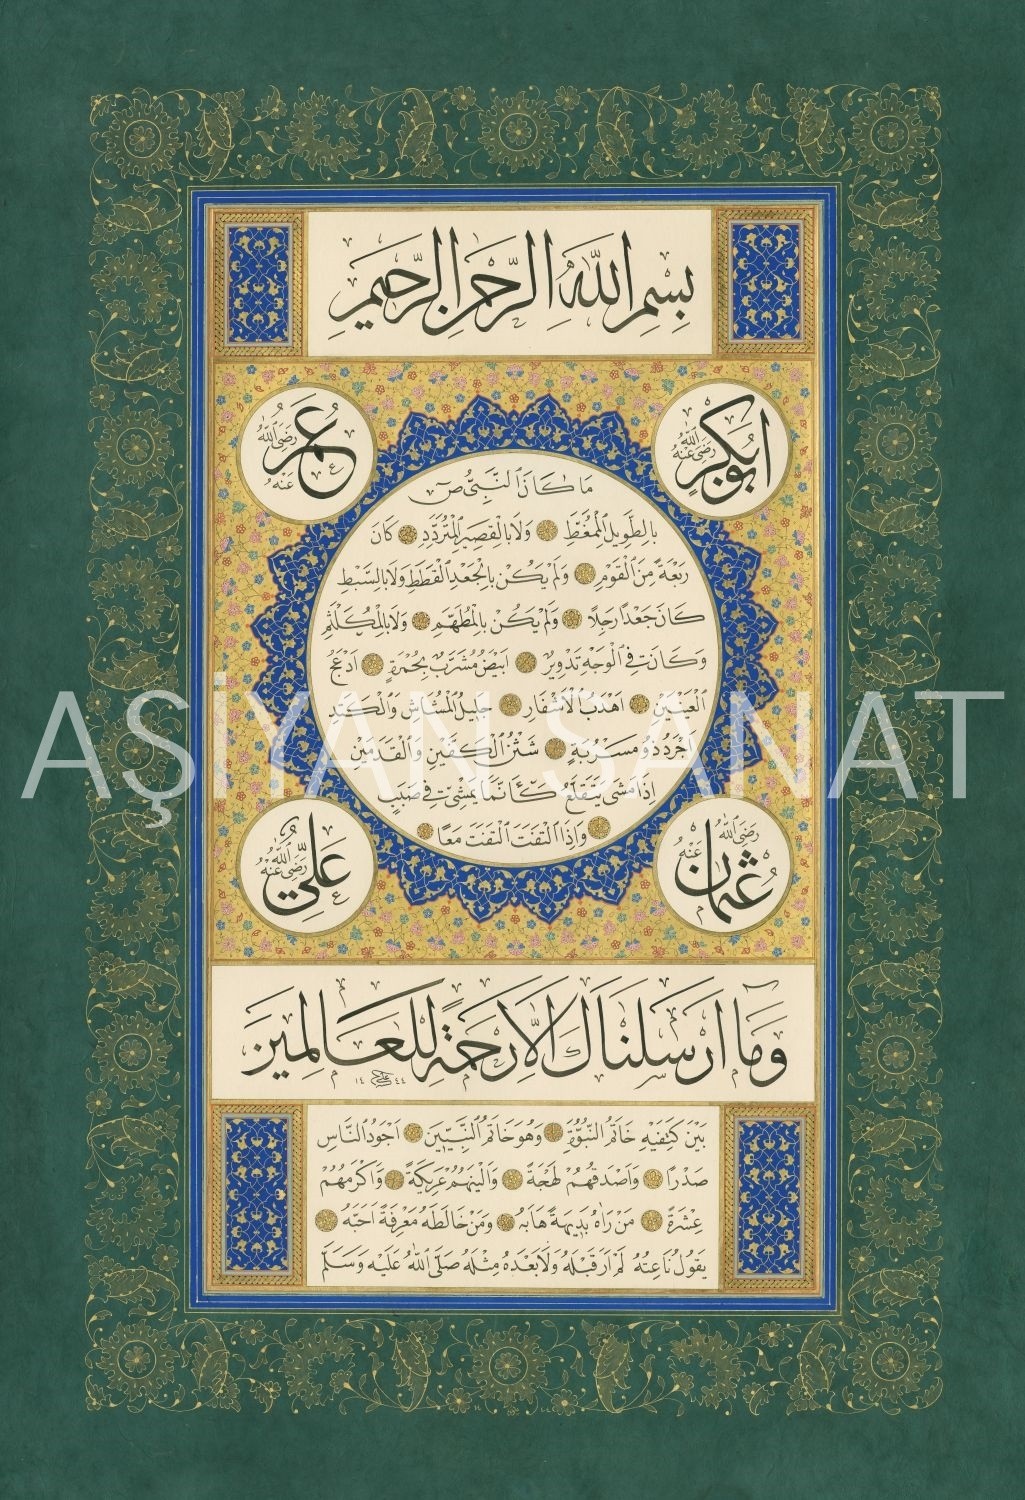 بِسْمِ اللّٰهِ الرَّحْمٰنِ الرَّحِيمِ
ابُوبَكْرٍ رَضِىَ اللّٰهُ عَنْهُ
عُمَر رَضِىَ اللّٰهُ عَنْهُ
مَا كَانَ النَّبِىُّ ص
بِالطَّوِيلِ الْمُمَّغِطِ وَلَا بِالْقَصِيرِ الْمُتَرَدِّدِ كَانَ
رَبْعَةً مِنَ الْقَوْمِ وَلَمْ يَكُنْ بِالْجَعْدِ الْقَطَطِ وَلَا بِالسَّبْطِ
كَانَ جَعْدًا رَجِلًا وَلَمْ يَكُنْ بِالْمُطَهَّمِ وَلَا بِالْمُكَلْثَمِ
وَكَانَ فِى الْوَجْهِ تَدْوِيرٌ ابْيَضُ مُشَرَّبٌ بِحُمْرَةٍ ادْعَجُ
الْعَيْنَيْنِ اهْدَبُ الْاَشْفَارِ جَلِيلُ الْمُشَاشِ وَالْكَتَدِ
اَجْرَدُ ذُو مَسْرُبَةٍ شَثْنُ الْكَفَّيْنِ وَالْقَدَمَيْنِ
اِذَا مَشٰى يَتَقَلَّعُ كَاَنَّمَا يَمْشِى فِى صَبَبٍ
وَاِذَا الْتَفَتَ الْتَفَتَ مَعًا
AŞİYAN SANAT
عُثْمَان رَضِىَ اللّٰهُ عَنْهُ
عَلِىّ رَضِىَ اللّٰهُ عَنْهُ
وَمَا اَرْسَلْنَاكَ اِلَّا رَحْمَةً لِلْعَالَمِينَ
١٤٤٤
بَيْنَ كَتِفَيْهِ خَاتَمُ النُّبُوَّةِ وَهُوَ خَاتَمُ النَّبِيِّينَ اَجْوَدُ النَّاسِ
صَدْرًا وَاَصْدَقُهُمْ لَهْجَةً وَاَلْيَنُهُمْ عَرِيكَةً وَاَكْرَمُهُمْ
عِشْرَةً مَنْ رَاٰهُ بَدِيهَةً هَابَهُ وَمَنْ خَالَطَهُ مَعْرِفَةً اَحَبَّهُ
يَقُولُ نَاعِتُهُ لَمْ اَرَ قَبْلَهُ وَلَا بَعْدَهُ مِثْلَهُ صَلَّى اللّٰهُ عَلَيْهِ وَسَلَّمَ